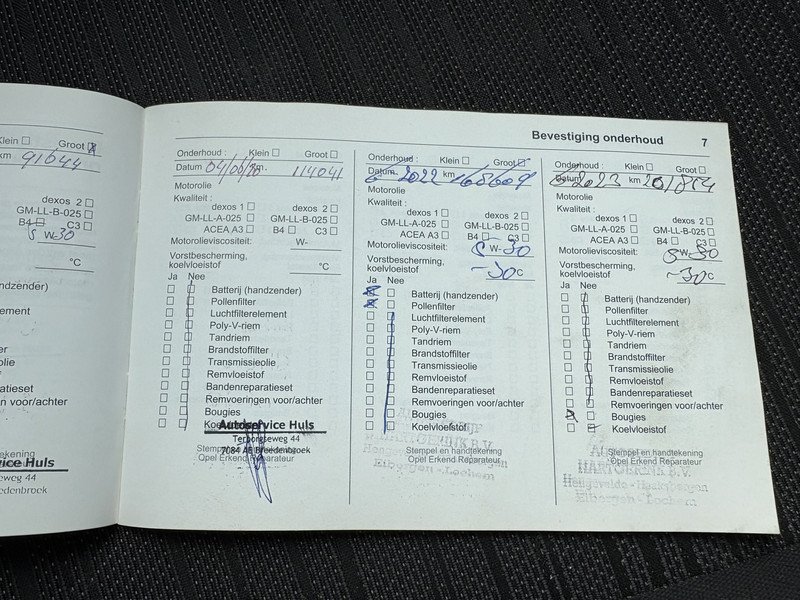 Klein Groot
km 91644
dexos 2
GM-LL-B-025
B4 C3
5 W-30
°C
Nee
vice Huls
weg 44
edenbroek
Bevestiging onderhoud 7
Onderhoud : Klein Groot
Datum 04/06/20 km. 114041
Motorolie
Kwaliteit :
dexos 1 dexos 2
GM-LL-A-025 GM-LL-B-025
ACEA A3 B4 C3
Motorolieviscositeit: W-
Vorstbescherming,
koelvloeistof °C
Ja Nee
Batterij (handzender)
Pollenfilter
Luchtfilterelement
Poly-V-riem
Tandriem
Brandstoffilter
Transmissieolie
Remvloeistof
Bandenreparatieset
Remvoeringen voor/achter
Bougies
Autoservice Huls
Terborgseweg 44
7084 AB Breedenbroek
Opel Erkend Reparateur
Onderhoud : Klein Groot
Datum 6/2022 km 168609
Motorolie
Kwaliteit :
dexos 1 dexos 2
GM-LL-A-025 GM-LL-B-025
ACEA A3 B4 C3
Motorolieviscositeit: 5 W-30
Vorstbescherming,
koelvloeistof -30°C
Ja Nee
Batterij (handzender)
Pollenfilter
Luchtfilterelement
Poly-V-riem
Tandriem
Brandstoffilter
Transmissieolie
Remvloeistof
Bandenreparatieset
Remvoeringen voor/achter
Bougies
Koelvloeistof
Stempel en handtekening
Opel Erkend Reparateur
Eibergen - Lochem
Onderhoud : Klein Groot
Datum 2023 km
Motorolie
Kwaliteit :
dexos 1 dexos 2
GM-LL-A-025 GM-LL-B-025
ACEA A3 B4 C3
Motorolieviscositeit: 5 W-30
Vorstbescherming,
koelvloeistof -30°C
Ja Nee
Batterij (handzender)
Pollenfilter
Luchtfilterelement
Poly-V-riem
Tandriem
Brandstoffilter
Transmissieolie
Remvloeistof
Bandenreparatieset
Remvoeringen voor/achter
Bougies
Koelvloeistof
Stempel en handtekening
Opel Erkend Reparateur
Eibergen - Lochem